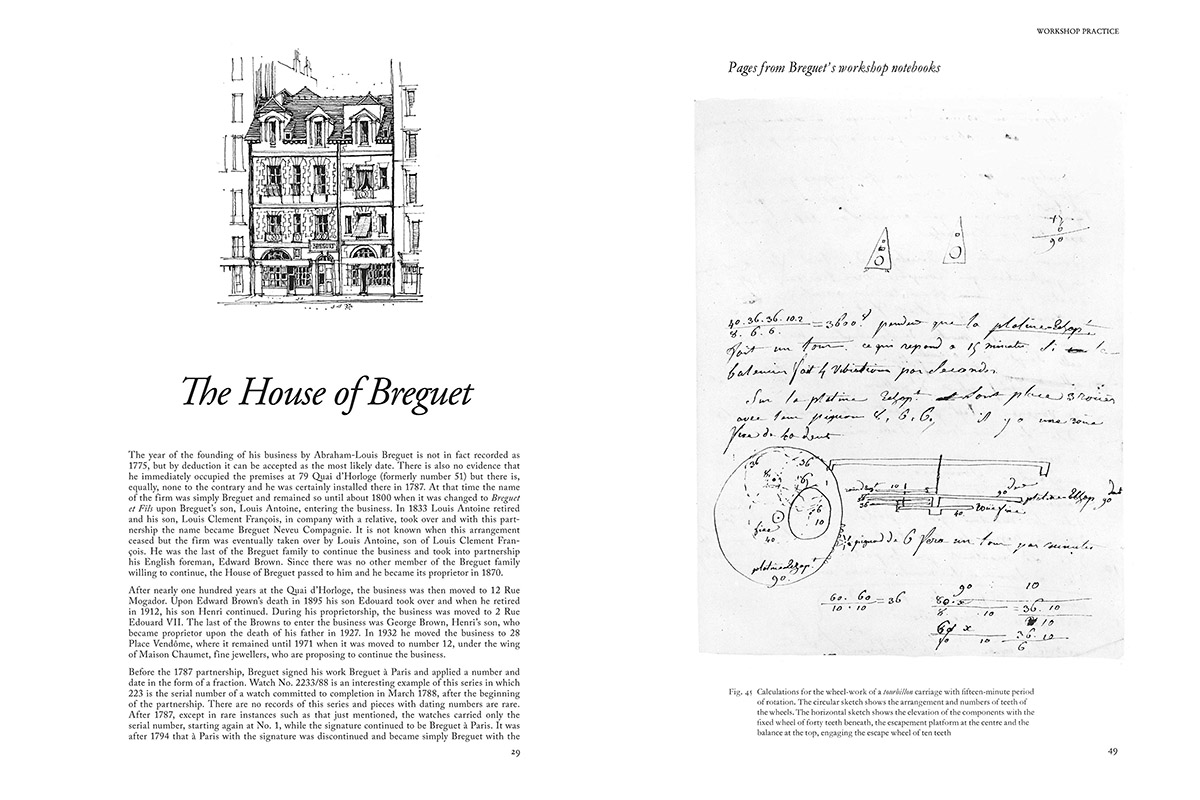 BREGUET
The House of Breguet
The year of the founding of his business by Abraham-Louis Breguet is not in fact recorded as
1775, but by deduction it can be accepted as the most likely date. There is also no evidence that
he immediately occupied the premises at 79 Quai d'Horloge (formerly number 51) but there is,
equally, none to the contrary and he was certainly installed there in 1787. At that time the name
of the firm was simply Breguet and remained so until about 1800 when it was changed to Breguet
et Fils upon Breguet's son, Louis Antoine, entering the business. In 1833 Louis Antoine retired
and his son, Louis Clement François, in company with a relative, took over and with this part-
nership the name became Breguet Neveu Compagnie. It is not known when this arrangement
ceased but the firm was eventually taken over by Louis Antoine, son of Louis Clement Fran-
çois. He was the last of the Breguet family to continue the business and took into partnership
his English foreman, Edward Brown. Since there was no other member of the Breguet family
willing to continue, the House of Breguet passed to him and he became its proprietor in 1870.
After nearly one hundred years at the Quai d'Horloge, the business was then moved to 12 Rue
Mogador. Upon Edward Brown's death in 1895 his son Edouard took over and when he retired
in 1912, his son Henri continued. During his proprietorship, the business was moved to 2 Rue
Edouard VII. The last of the Browns to enter the business was George Brown, Henri's son, who
became proprietor upon the death of his father in 1927. In 1932 he moved the business to 28
Place Vendôme, where it remained until 1971 when it was moved to number 12, under the wing
of Maison Chaumet, fine jewellers, who are proposing to continue the business.
Before the 1787 partnership, Breguet signed his work Breguet à Paris and applied a number and
date in the form of a fraction. Watch No. 2233/88 is an interesting example of this series in which
223 is the serial number of a watch committed to completion in March 1788, after the beginning
of the partnership. There are no records of this series and pieces with dating numbers are rare.
After 1787, except in rare instances such as that just mentioned, the watches carried only the
serial number, starting again at No. 1, while the signature continued to be Breguet à Paris. It was
after 1794 that à Paris with the signature was discontinued and became simply Breguet with the
29
WORKSHOP PRACTICE
Pages from Breguet's workshop notebooks
90
40. 36. 36. 10. 2 = 3600
8. 6. 6.
pendent que la platine
fait un tour. ce qui repond a 15 minutes Si
balancier fait 4 Vibrations par Secondes
Sur la platine Echapt. Sont placé 3 roues
avec leur pignon 8, 6, 6, il y a une roue
fixe de 40 dents
36 36
fixe
40.
36
10
platine Echapt.
90.
10
36
40 roue fixe
90
platine Echap
90
pignon de 6 fera un tour par minutes
60. 60 = 36
10. 10
90 10
36. 10
10
36. 10
6
Fig. 45 Calculations for the wheel-work of a tourbillon carriage with fifteen-minute period
of rotation. The circular sketch shows the arrangement and numbers of teeth of
the wheels. The horizontal sketch shows the elevation of the components with the
fixed wheel of forty teeth beneath, the escapement platform at the centre and the
balance at the top, engaging the escape wheel of ten teeth
49